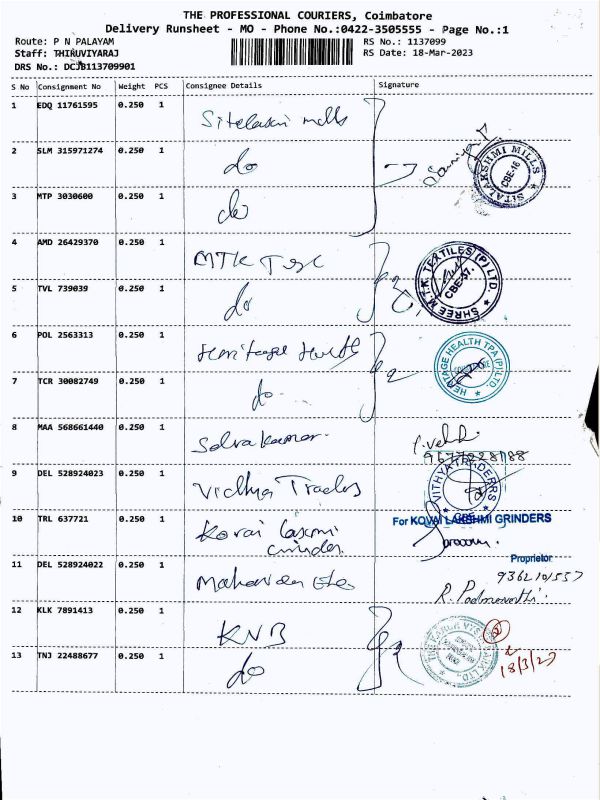 THE PROFESSIONAL COURIERS, Coimbatore
Delivery Runsheet - MO - Phone No.:0422-3505555 - Page No.:1
Route: P N PALAYAM
RS No.: 1137099
Staff: THIRUVIYARAJ
RS Date: 18-Mar-2023
DRS No.: DCJB113709901
S No Consignment No Weight PCS Consignee Details Signature
1 EDQ 11761595 0.250 1 Sitelaxmi mills
2 SLM 315971274 0.250 1 do
SITALAKSHMI MILLS CBE-16
3 MTP 3030600 0.250 1 do
4 AMD 26429370 0.250 1 MTK Tex
SHREE M.T.K. TEXTILES (P) LTD. CBE-37.
5 TVL 739039 0.250 1 do
6 POL 2563313 0.250 1 Heritage Health
HERITAGE HEALTH TPA (P) LTD.
7 TCR 30082749 0.250 1 do
8 MAA 568661440 0.250 1 Selvakumar
9 DEL 528924023 0.250 1 Vidhya Trades
10 TRL 637721 0.250 1 Kovai laxmi
Grinder
For KOVAI LAKSHMI GRINDERS
Proprietor
11 DEL 528924022 0.250 1
9362101557
R. Padmavathi.
12 KLK 7891413 0.250 1 KVB
13 TNJ 22488677 0.250 1 do
2
18/3/23